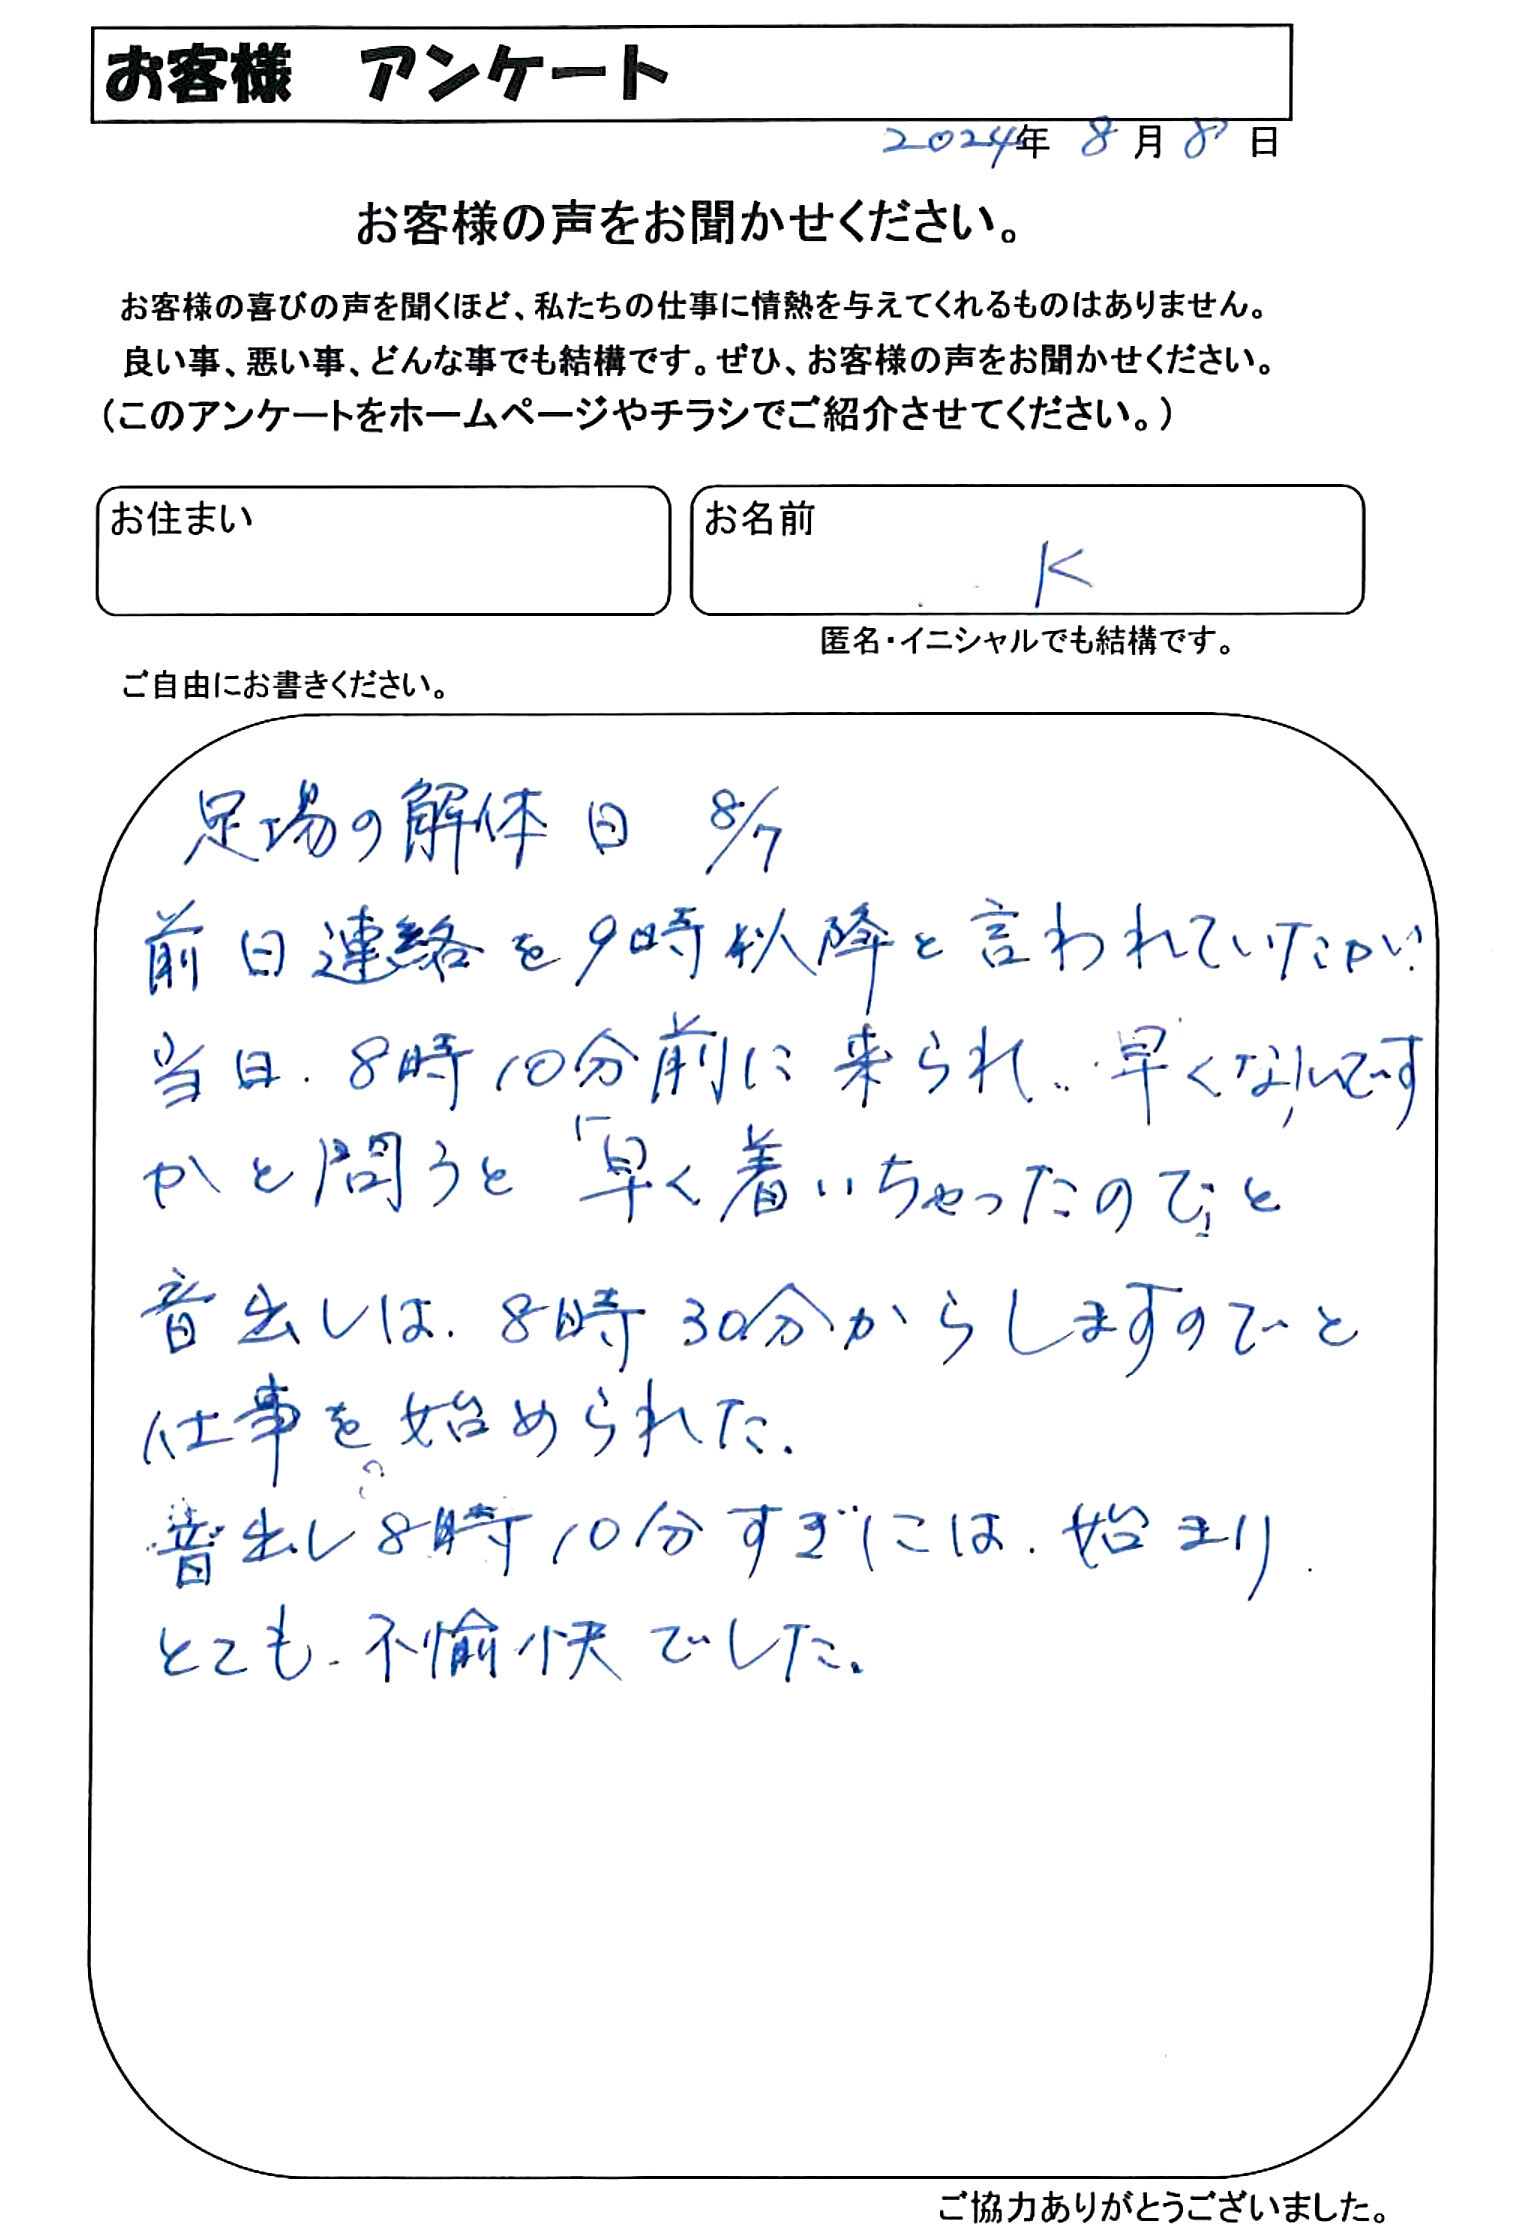 お客様　アンケート
2024年 8月 8日
お客様の声をお聞かせください。
お客様の喜びの声を聞くほど、私たちの仕事に情熱を与えてくれるものはありません。
良い事、悪い事、どんな事でも結構です。ぜひ、お客様の声をお聞かせください。
（このアンケートをホームページやチラシでご紹介させてください。）
お住まい
お名前
K
匿名・イニシャルでも結構です。
ご自由にお書きください。
足場の解体日 8/7
前日連絡を9時以降と言われていたが
当日. 8時10分前に来られ、早くないですか
かと問うと「早く着いちゃったので」と
音出しは. 8時30分からしますのでと
仕事を始められた.
音出し8時10分すぎには. 始まり
とても. 不愉快でした。
ご協力ありがとうございました。